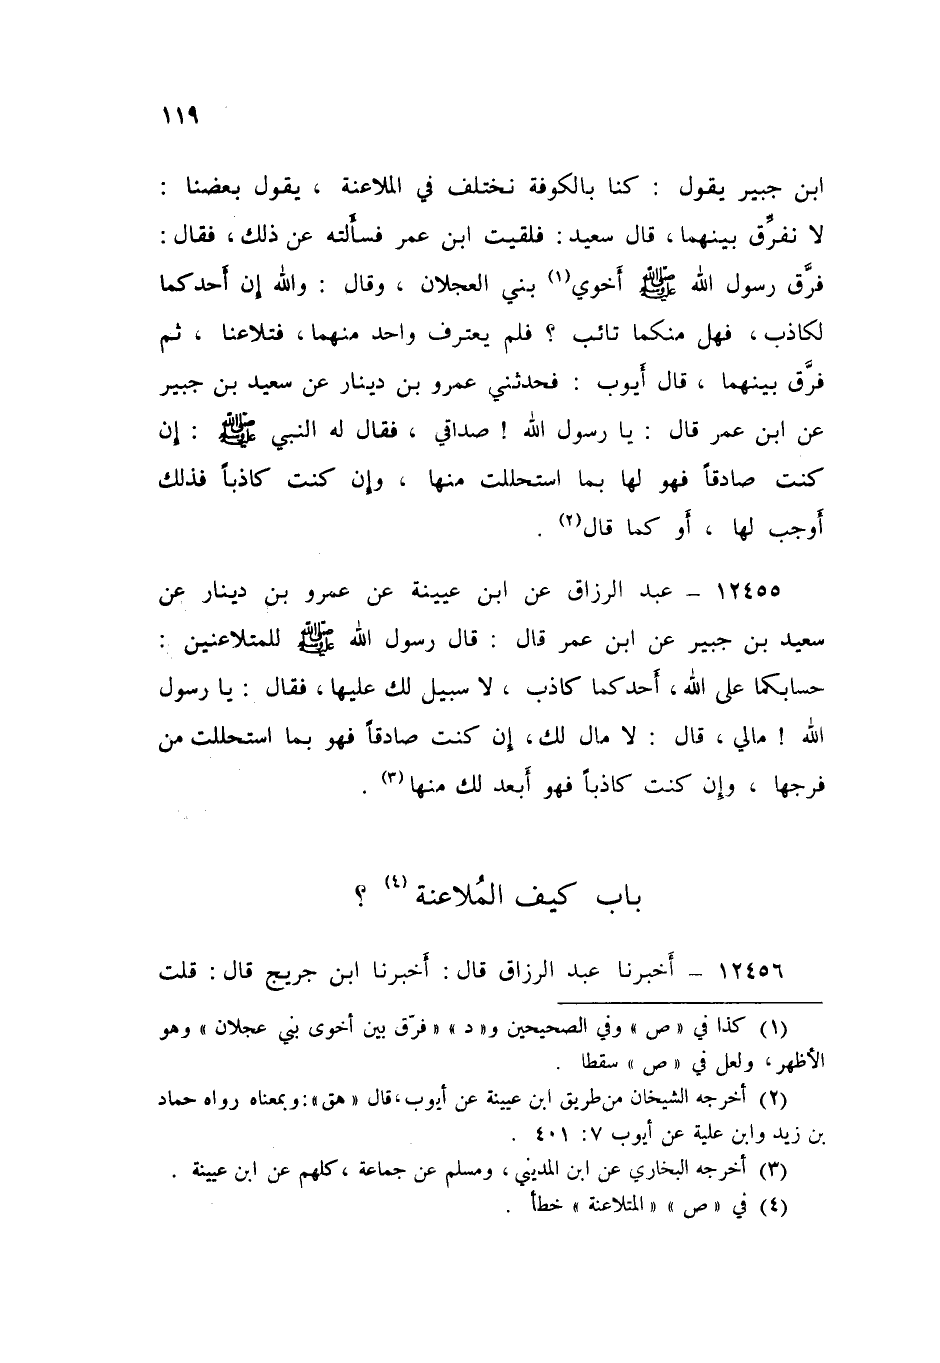 ١١٩
ابن جبير يقول : كنا بالكوفة نختلف في الملاعنة ، يقول بعضنا :
لا نفرِّق بينهما ، قال سعيد : فلقيت ابن عمر فسأَلته عن ذلك ، فقال :
فرَّق رسول الله ﷺ أَخوي(١) بني العجلان ، وقال : والله إن أَحدكما
لكاذب ، فهل منكما تائب ؟ فلم يعترف واحد منهما ، فتلاعنا ، ثم
فرَّق بينهما ، قال أَيوب : فحدثني عمرو بن دينار عن سعيد بن جبير
عن ابن عمر قال : يا رسول الله ! صداقي ، فقال له النبي ﷺ : إن
كنت صادقاً فهو لها بما استحللت منها ، وإن كنت كاذباً فذلك
أَوجب لها ، أَو كما قال(٢) .
١٢٤٥٥ – عبد الرزاق عن ابن عيينة عن عمرو بن دينار عن
سعيد بن جبير عن ابن عمر قال : قال رسول الله ﷺ للمتلاعنين :
حسابكما على الله ، أَحدكما كاذب ، لا سبيل لك عليها ، فقال : يا رسول
الله ! مالي ، قال : لا مال لك ، إن كنت صادقاً فهو بما استحللت من
فرجها ، وإن كنت كاذباً فهو أَبعد لك منها(٣) .
باب كيف المُلاعنة (٤) ؟
١٢٤٥٦ – أَخبرنا عبد الرزاق قال : أَخبرنا ابن جريج قال : قلت
(١) كذا في « ص » وفي الصحيحين و« د » « فرّق بين أخوى بني عجلان » وهو
الأظهر ، ولعل في « ص » سقطا .
(٢) أخرجه الشيخان من طريق ابن عيينة عن أيوب ، قال « هق » : وبمعناه رواه حماد
بن زيد وابن علية عن أيوب ٧ : ٤٠١ .
(٣) أخرجه البخاري عن ابن المديني ، ومسلم عن جماعة ، كلهم عن ابن عيينة .
(٤) في « ص » « المتلاعنة » خطأ .